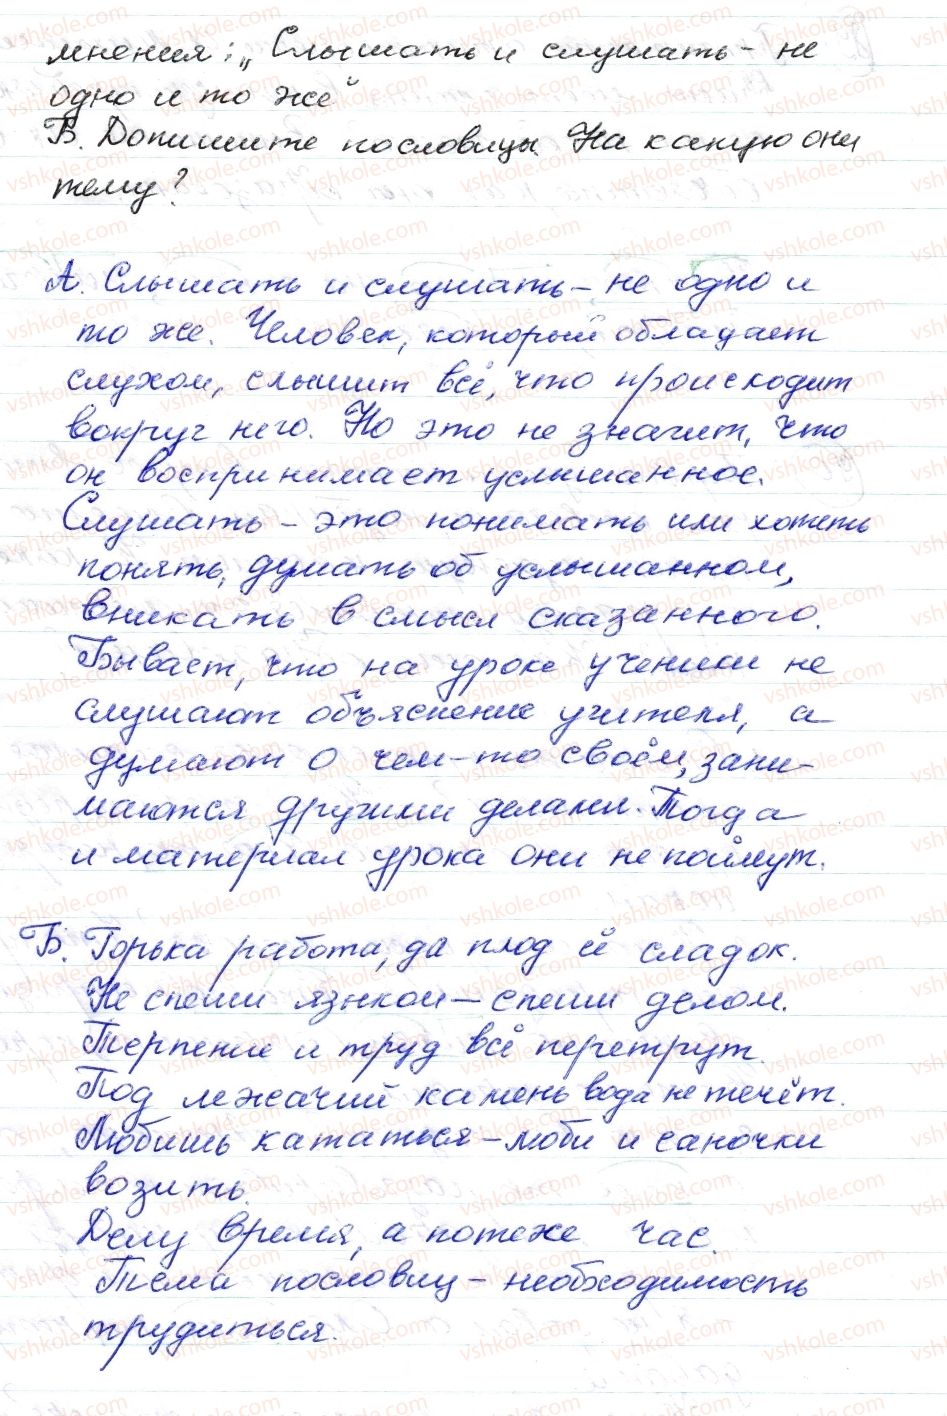 мнения: „Слышать и слушать – не
одно и то же"
Б. Допишите пословицы. На какую они
тему?
А. Слышать и слушать – не одно и
то же. Человек, который обладает
слухом, слышит всё, что происходит
вокруг него. Но это не значит, что
он воспринимает услышанное.
Слушать – это понимать или хотеть
понять, думать об услышанном,
вникать в смысл сказанного.
Бывает, что на уроке ученики не
слушают объяснение учителя, а
думают о чем-то своём, зани-
маются другими делами. Тогда
и материал урока они не поймут.
Б. Горька работа, да плод её сладок.
Не спеши языком – спеши делом.
Терпение и труд всё перетрут.
Под лежачий камень вода не течёт.
Любишь кататься – люби и саночки
возить.
Делу время, а потехе час.
Тема пословиц – необходимость
трудиться.